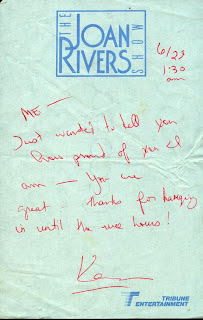 THE
JOAN
RIVERS
SHOW
6/23
1:30
am
ME —
Just wanted to tell you
how proud of you I
am — You are
great thanks for hanging
in until the wee hours!
TRIBUNE
ENTERTAINMENT